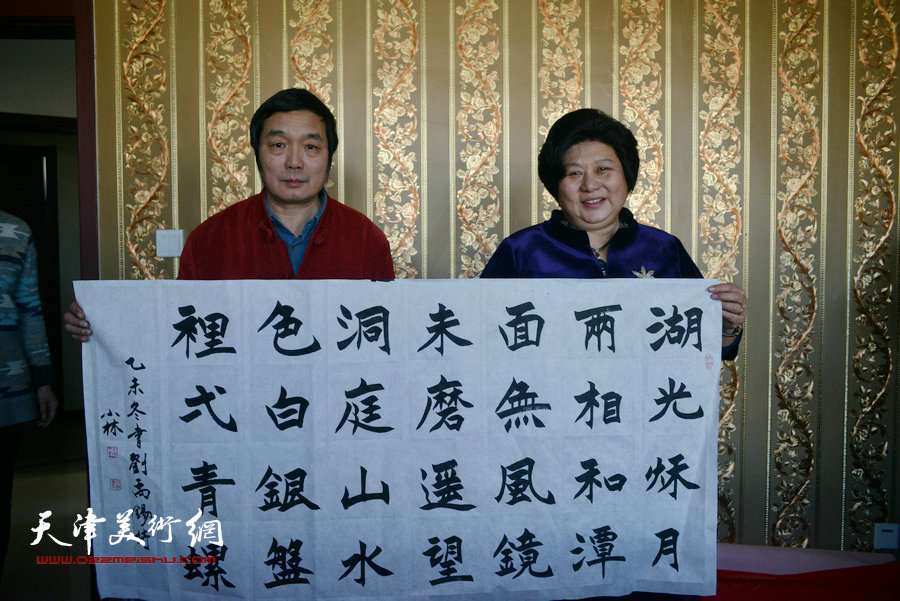 湖光烌月
兩相和潭
面無風鏡
未磨遥望
洞庭山水
色白銀盤
裡弌青螺
乙未冬書劉禹錫詩
小林
天津美術網
www.022meishu.com